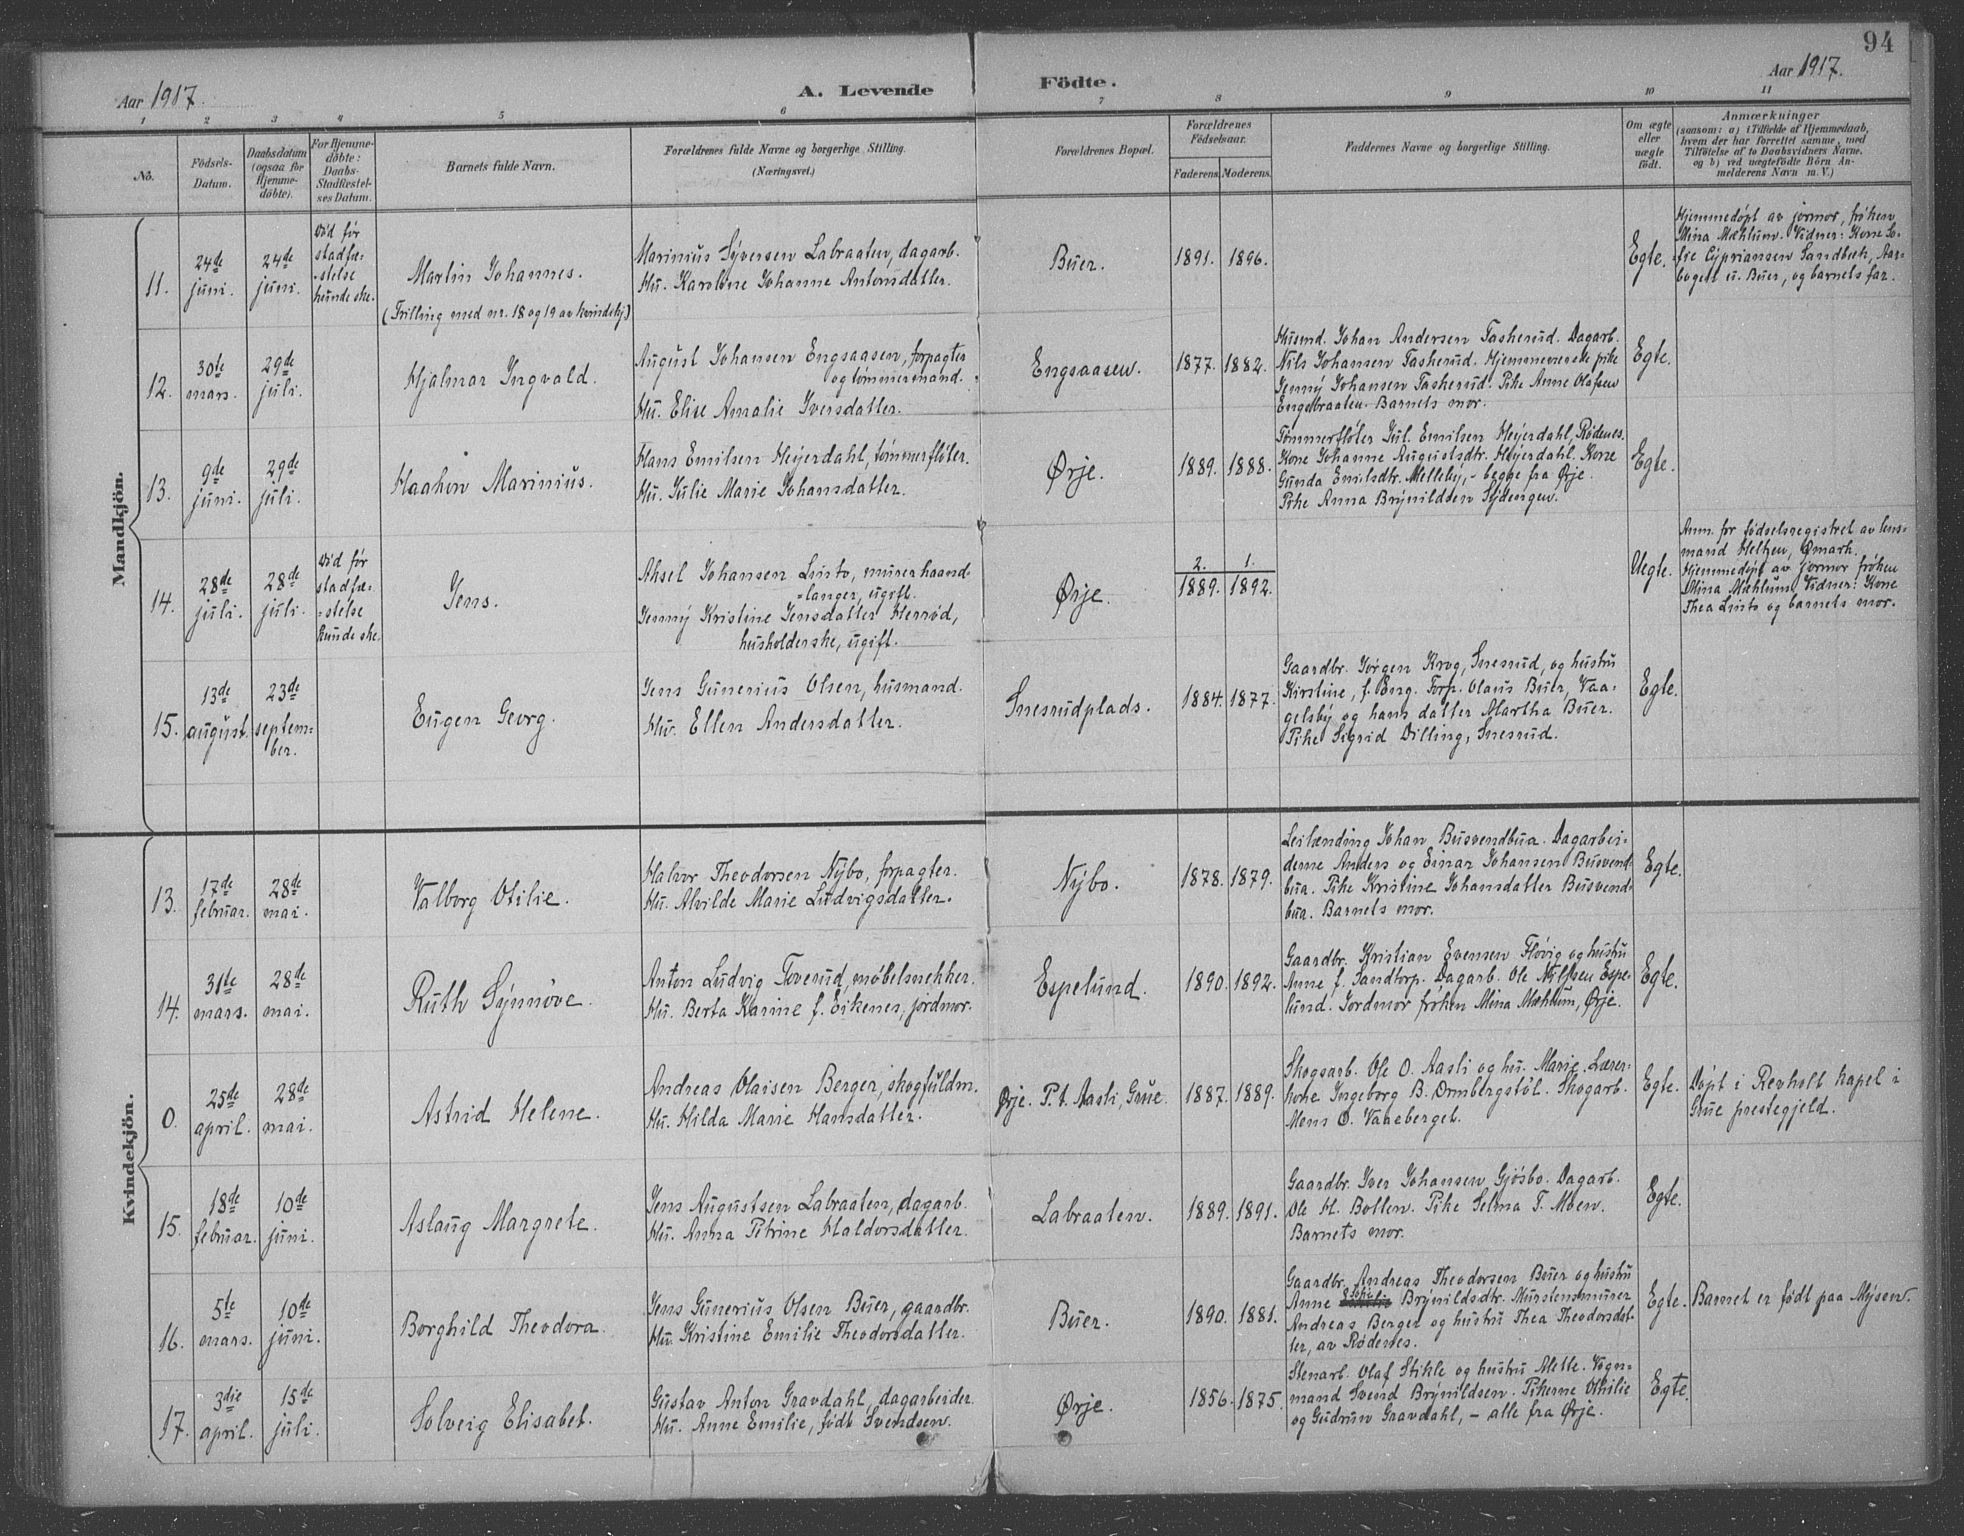 94
Aar 1917.
A. Levende Födte.
Aar 1917.
1 2 3 4 5 6 7 8 9 10 11
No.
Födsels-Datum.
Daabsdatum (ogsaa for Hjemme-döbte).
For Hjemme-döbte: Daabs-Stadfæstel-ses Datum.
Barnets fulde Navn.
Forældrenes fulde Navne og borgerlige Stilling.
(Næringsvei.)
Forældrenes Bopæl.
Forældrenes Födselsaar.
Faderens. Moderens.
Faddernes Navne og borgerlige Stilling.
Om ægte eller uægte födt.
Anmærkninger
(saasom: a) i Tilfælde af Hjemmedaab,
hvem der har forrettet samme, med
Tilföielse af to Daabsvidners Navne,
og b) ved uægtefödte Börn An-
melderens Navn m. V.)
Mandkjön.
11. 24de juni. 24de juni.
Död før
stadfæ-
stelse
kunde ske.
Martin Johannes.
(Trilling med nr. 18 og 19 av kvindekj.)
Marinius Syversen Labraaten, dagarb.
Hu. Karoline Johanne Antonsdatter.
Buer.
1891. 1896.
Egte.
Hjemmedøpt av jormor, frøken
Mina Mæhlum. Vidner: Kone So-
fie Cypriansen Sandbæk, Aar-
bogett u. Buer, og barnets far.
12. 30te mars. 29de juli.
Hjalmar Ingvald.
August Johansen Engsaasen, forpagter
og tømmermand.
Hu. Elise Amalie Iversdatter.
Engsaasen.
1877. 1882.
Husmd. Johan Andersen Taskerud. Dagarb.
Nils Johansen Taskerud. Hjemmeværende pike
Jenny Johansen Taskerud. Pike Anne Olafsen
Engebraaten. Barnets mor.
Egte.
13. 9de juni. 29de juli.
Haakon Marinius.
Hans Emilsen Heyerdahl, tømmerfløter.
Hu. Julie Marie Johansdatter.
Ørje.
1889. 1888.
Tømmerfløter Jul. Emilsen Heyerdahl, Rødenes.
Kone Johanne Augustsdtr. Heyerdahl. Kone
Gunda Emilsdtr. Melleby, - begge fra Ørje.
Pike Anna Brynildsen Sydengen.
Egte.
14. 28de juli. 28de juli.
Død før
stadfæ-
stelse
kunde ske.
Jens.
Aksel Johansen Linto, murerhaand-
langer, ugift.
Jenny Kristine Jensdatter Herrød,
husholderske, ugift.
Ørje.
2. 1.
1889. 1892.
Uegte.
Anm. for fødselsregistret av lens-
mand Heltzen, Ømark.
Hjemmedøpt av jormor frøken
Mina Mæhlum. Vidner: Kone
Thea Linto og barnets mor.
15. 13de august. 23de septem-
ber.
Eugen Georg.
Jens Gunerius Olsen, husmand.
Hu. Ellen Andersdatter.
Snesrudplads.
1884. 1877.
Gaardbr. Jørgen Krog, Snesrud, og hustru
Kirstine, f. Eng. Forp. Olaus Buer, Vaa-
gelsby og hans datter Martha Buer.
Pike Sigrid Dilling, Snesrud.
Egte.
Kvindekjön.
13. 17de februar. 28de mai.
Valborg Otilie.
Halvor Theodorsen Nybo, forpagter.
Hu. Alvilde Marie Ludvigsdatter.
Nybo.
1878. 1879.
Leilænding Johan Busvendbua. Dagarbei-
derne Anders og Einar Johansen Busvend-
bua. Pike Kristine Johansdatter Busvend-
bua. Barnets mor.
Egte.
14. 31te mars. 28de mai.
Ruth Synnøve.
Anton Ludvig Toverud, møbelsnekker.
Hu. Berta Karine f. Eikenes, jordmor.
Espelund.
1890. 1892.
Gaardbr. Kristian Evensen Fløvig og hustru
Anne f. Sandtorp. Dagarb. Ole Nilssen Espe-
lund. Jordmor frøken Mina Mæhlum, Ørje.
Egte.
0. 25de april. 28de mai.
Astrid Helene.
Andreas Olaisen Berger, skogfuldm.
Hu. Hilda Marie Hansdatter.
Ørje. P. t. Aasli, Grue.
1887. 1889.
Skogsarb. Ole O. Aasli og hu. Marie. Lærer-
kone Ingeborg B. Ormbergstøl. Skogarb.
Mons O. Vaaeberget.
Egte.
Døpt i Revholt kapel i
Grue prestegjeld.
15. 18de februar. 10de juni.
Aslaug Margrete.
Jens Augustsen Labraaten, dagarb.
Hu. Anna Petrine Haldorsdatter.
Labraaten.
1889. 1891.
Gaardbr. Iver Johansen Gjøsbo. Dagarb.
Ole H. Bollen. Pike Selma T. Moen.
Barnets mor.
Egte.
16. 5te mars. 10de juni.
Borghild Theodora.
Jens Gunerius Olsen Buer, gaardbr.
Hu. Kristine Emilie Theodorsdatter.
Buer.
1890. 1881.
Gaardbr. Andreas Theodorsen Buer og hustru
Anne Brynildsdtr. Murstensmurer
Andreas Berger og hustru Thea Theodorsdat-
ter, av Rødenes.
Egte.
Barnet er født paa Mysen.
17. 3die april. 15de juli.
Solveig Elisabet.
Gustav Anton Gravdahl, dagarbeider.
Hu. Anne Emilie, født Svendsen.
Ørje.
1856. 1875.
Stenarb. Olaf Stikle og hustru Mette. Vogn-
mand Svend Brynildsen. Pikerne Othilie
og Gudrun Gravdahl, - alle fra Ørje.
Egte.